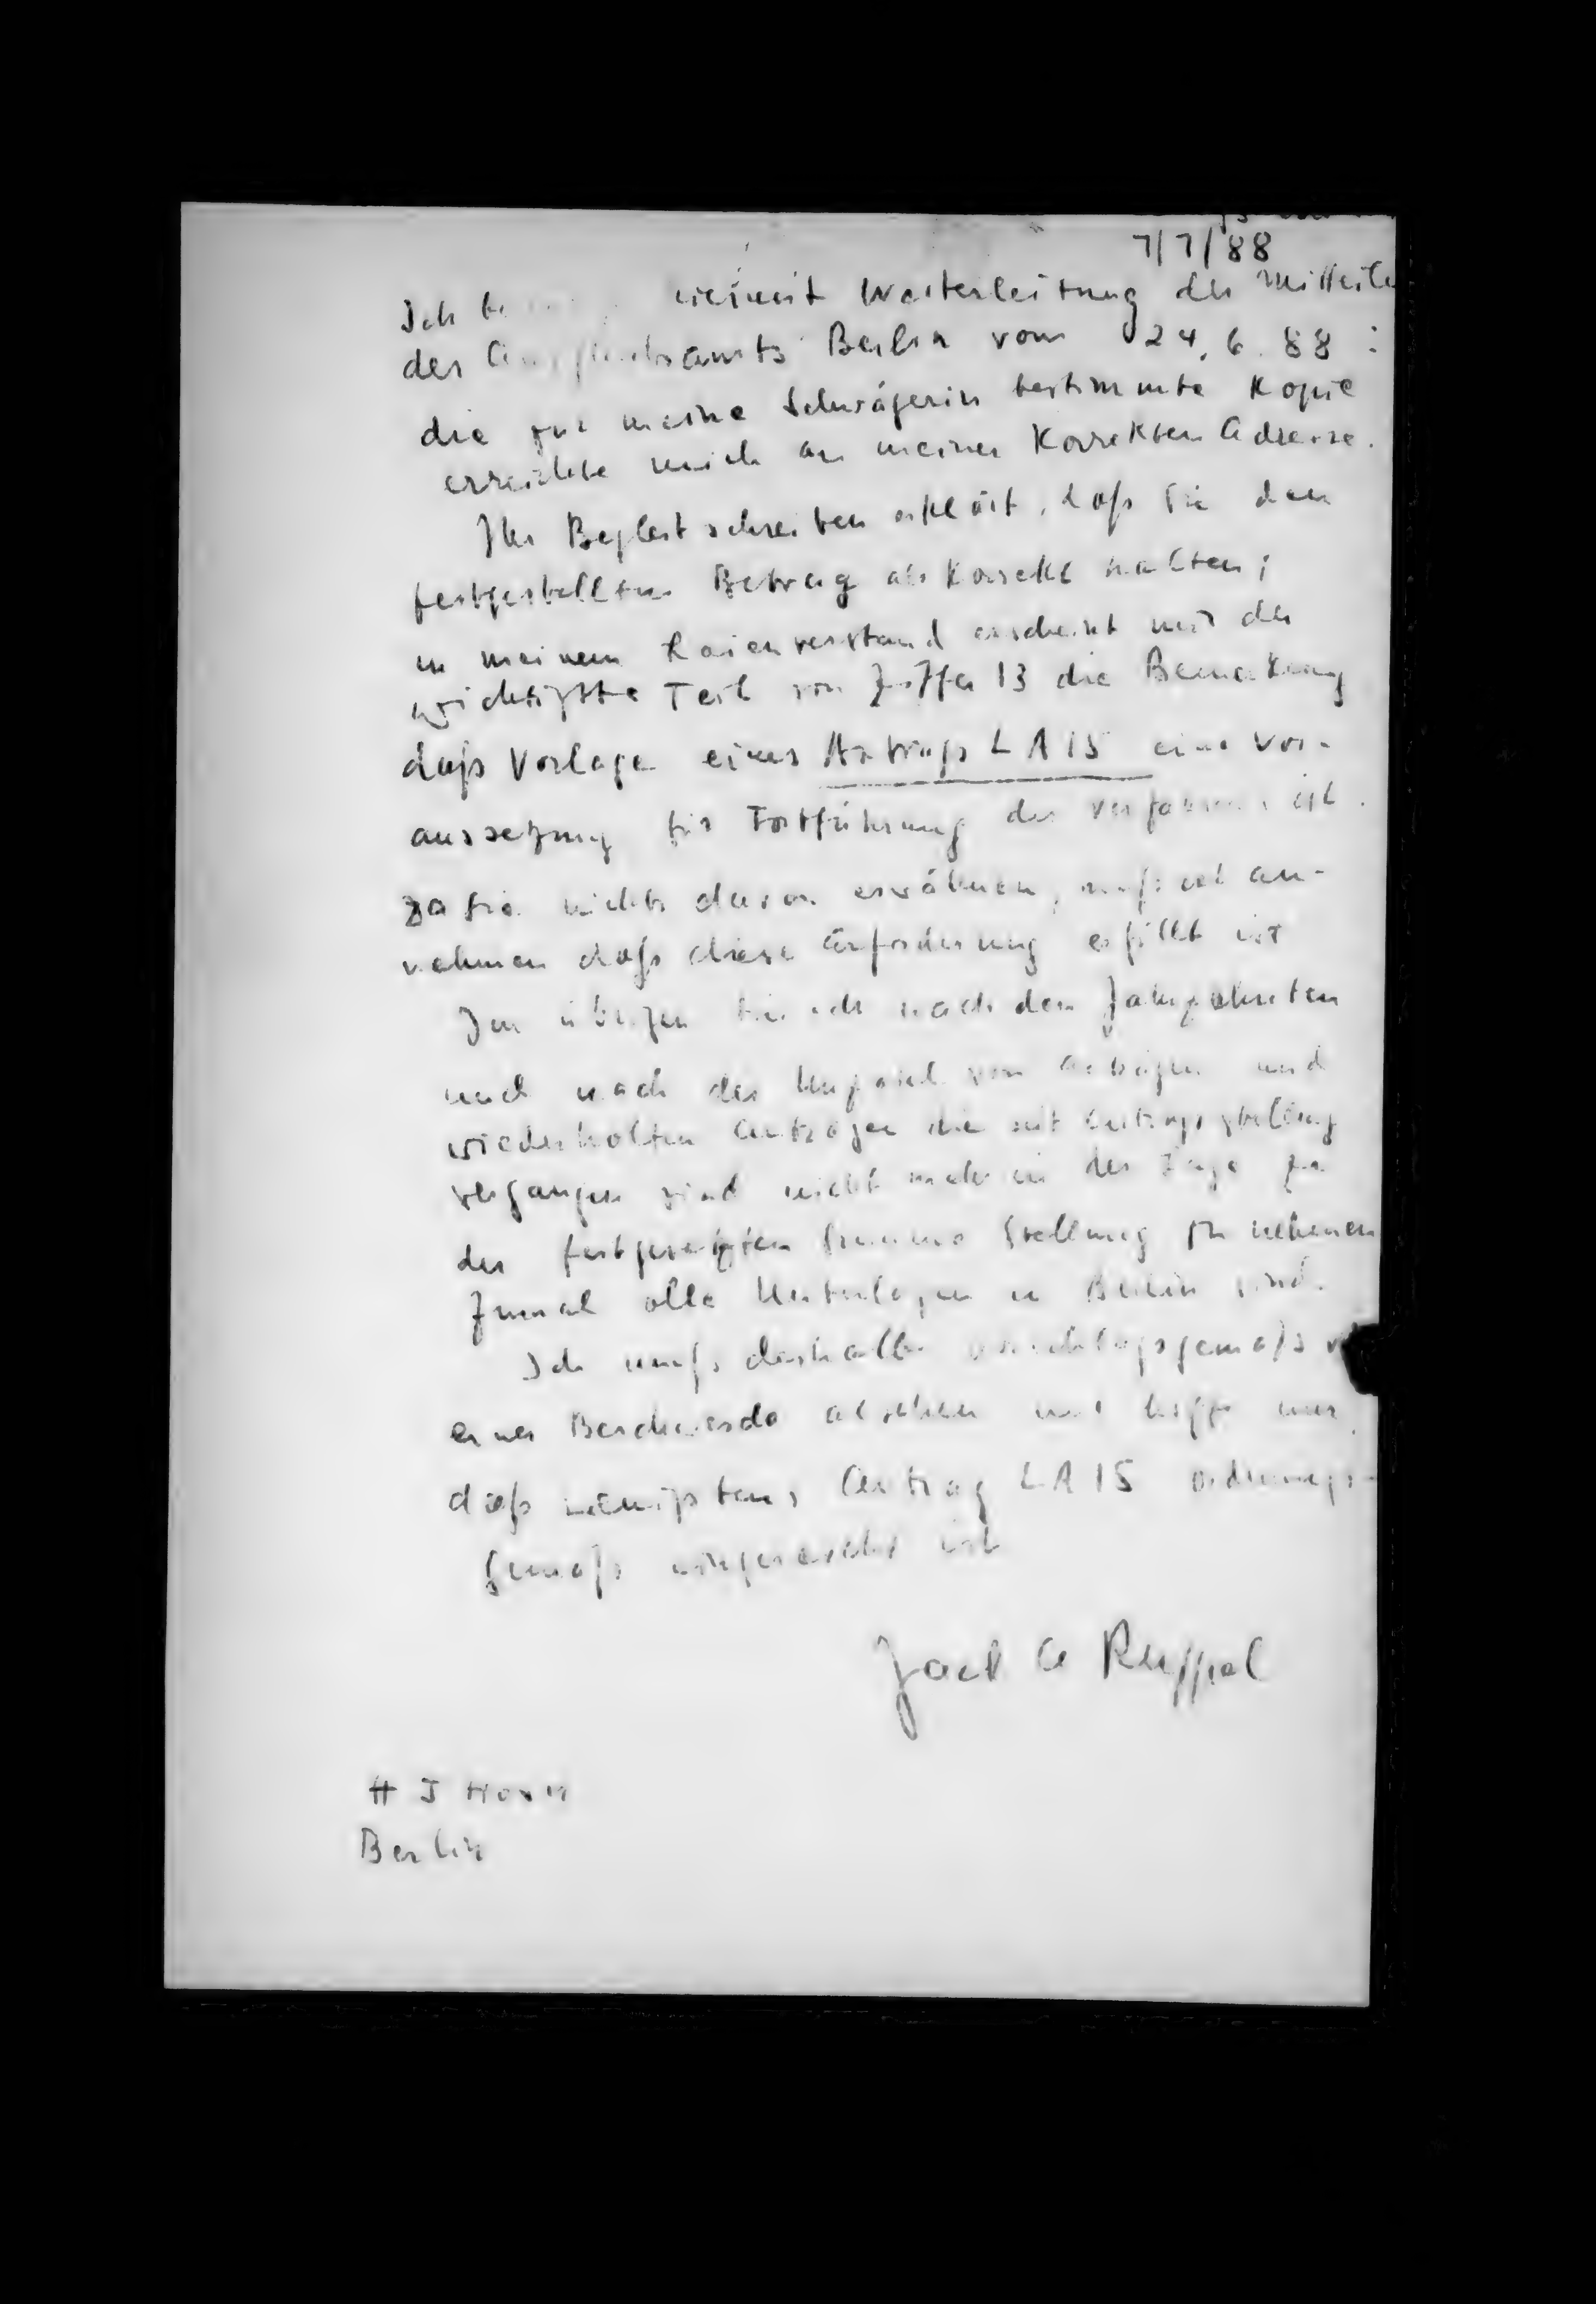 7/7/88
Ich hiermit Weiterleitung der Mitteilu
des Ausgleichsamts Berlin vom 24.6.88 :
die für meine Schwägerin bestimmte Kopie
erreichte mich an meiner Korrekten Adresse.
Ihr Begleitschreiben erklärt, daß Sie den
festgestellten Betrag als Korrekt halten;
in meinem Laienverstand erscheint mir der
wichtigste Teil von Ziffer 13 die Bemerkung
daß Vorlage eines Antrags LA 15 eine Vor-
aussetzung für Fortführung des Verfahrens ist.
Da Sie nichts davon erwähnen, muß ich an-
nehmen daß diese Anforderung erfüllt ist
Im übrigen bin ich nach den Jahrzehnten
und nach der Unzahl von Anträgen und
wiederholten Anträgen die seit Antragstellung
vergangen sind nicht mehr in der Lage zu
der festgesetzten Summe Stellung zu nehmen
zumal alle Unterlagen in Berlin sind.
Ich muß deshalb vorschlagsgemäß v
einer Beschwerde absehen und hoffe nur,
daß wenigstens Antrag LA 15 ordnungs-
gemäß eingereicht ist
Jack A Ruppel
H J Horn
Berlin